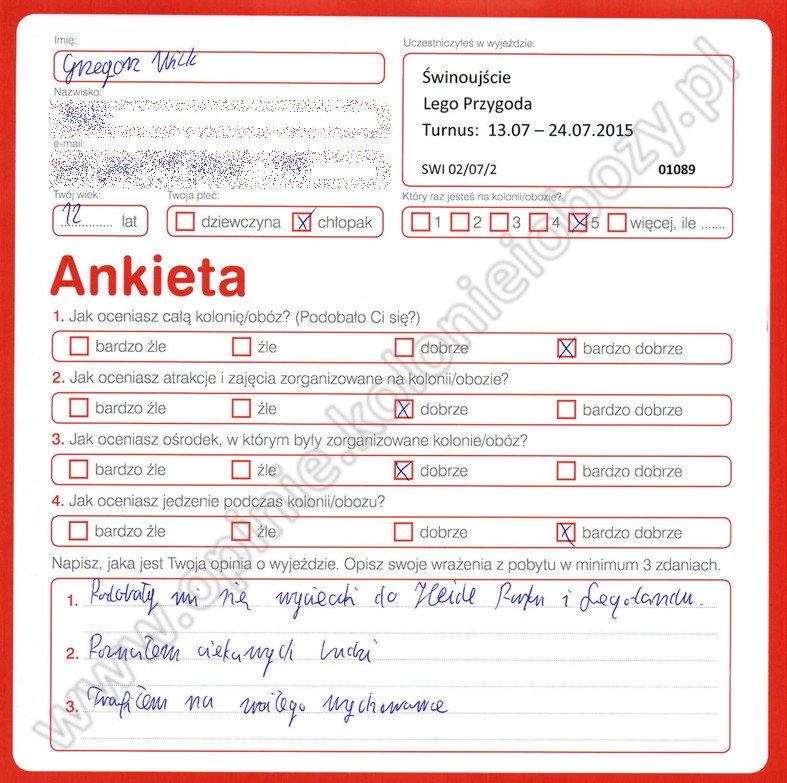 Imię:
Grzegorz Wilk
Uczestniczyłeś w wyjeździe:
Świnoujście
Lego Przygoda
Turnus: 13.07 – 24.07.2015
SWI 02/07/2 01089
Nazwisko:
e-mail:
Twój wiek:
12 lat
Twoja płeć:
dziewczyna chłopak
Który raz jesteś na kolonii/obozie?
1 2 3 4 5 więcej, ile .......
Ankieta
1. Jak oceniasz całą kolonię/obóz? (Podobało Ci się?)
bardzo źle źle dobrze bardzo dobrze
2. Jak oceniasz atrakcje i zajęcia zorganizowane na kolonii/obozie?
bardzo źle źle dobrze bardzo dobrze
3. Jak oceniasz ośrodek, w którym były zorganizowane kolonie/obóz?
bardzo źle źle dobrze bardzo dobrze
4. Jak oceniasz jedzenie podczas kolonii/obozu?
bardzo źle źle dobrze bardzo dobrze
Napisz, jaka jest Twoja opinia o wyjeździe. Opisz swoje wrażenia z pobytu w minimum 3 zdaniach.
1. Podobały mi się wycieczki do Heide Parku i Legolandu.
2. Poznałem ciekawych ludzi
3. Trafiłem na miłego wychowawce
www.opinie.kolonieiobozy.pl